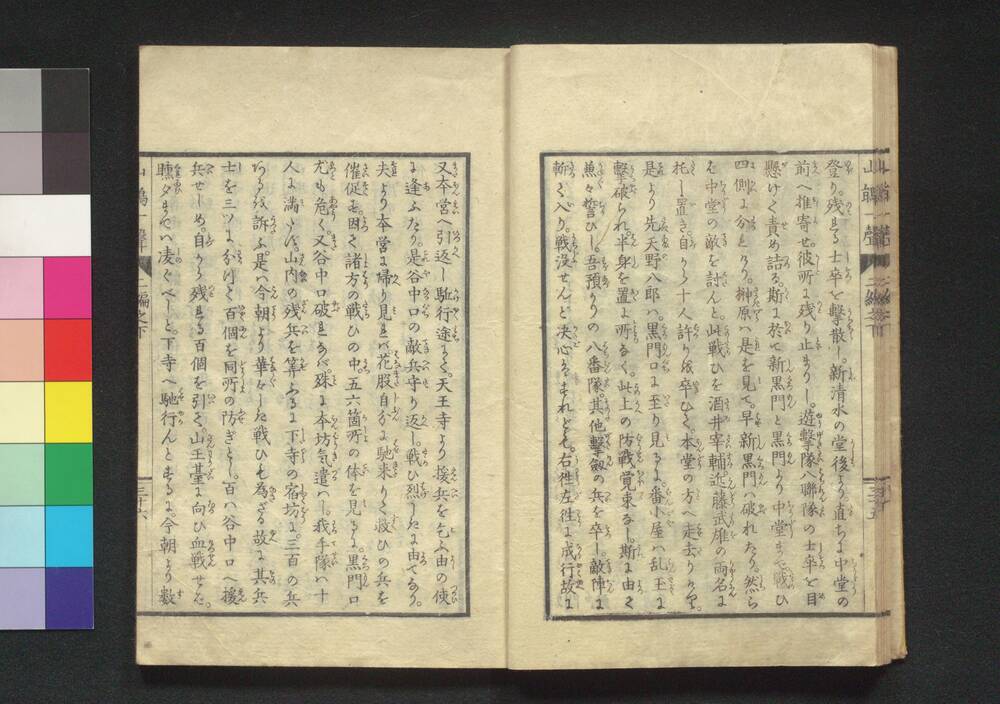 登り。残る士卒を撃散し。新清水の堂後より直ちに中堂の
前へ推寄せ。彼所に残り止まりし。遊撃隊八聯隊の士卒を目
懸けて責め詰る。斯に於て新黒門と黒門より中堂まで戦ひ
四側に分れたり。榊原ハ是を見て。早新黒門ハ破れたり。然ら
を中堂の敵を討んと。此戦ひを酒井宰輔近藤武雄の両名に
托し置き。自から十人許り放卒ひて。本堂の方へ走去りけり。
是より先天野八郎ハ。黒門口に至り見るに。番小屋ハ乱玉に
撃破られ。半身を置に所なく。此上の防戦覚束なし。斯に由て
兼々誓ひし。吾預かりの八番隊。其他撃劔の兵を卒し。敵陣に
斬て入り。戦没せんと決心をすれども。右往左往に成行故に
又本営へ引返し馳行途にて。天王寺より援兵を乞ふ由の使
に逢ふたり。是谷中口の敵兵守り返し。戦ひ烈しきに由てなり。
夫より本営に帰り見れバ花股自分に馳来りて救ひの兵を
催促す。因て諸方の戦ひの中。五六箇所の体を見るに。黒門口
尤も危く。又谷中口破れなバ。殊に本坊気遣ハし。我手隊ハ十
人に満ざれバ。山内の残兵を算ふるに下寺の宿坊に。三百の兵
ある故訴ふ。是ハ今朝より華々しき戦ひも為ざる故に其兵
士を三ツに分つて百個を同所の防ぎとし。百ハ谷中口へ援
兵せしめ。自から残る百個を引て。山王臺に向ひ血戦せば。
曛夕までハ凌ぐべしと。下寺へ馳行んとするに。今朝より数
山鵑一聲
二編之下
三十六